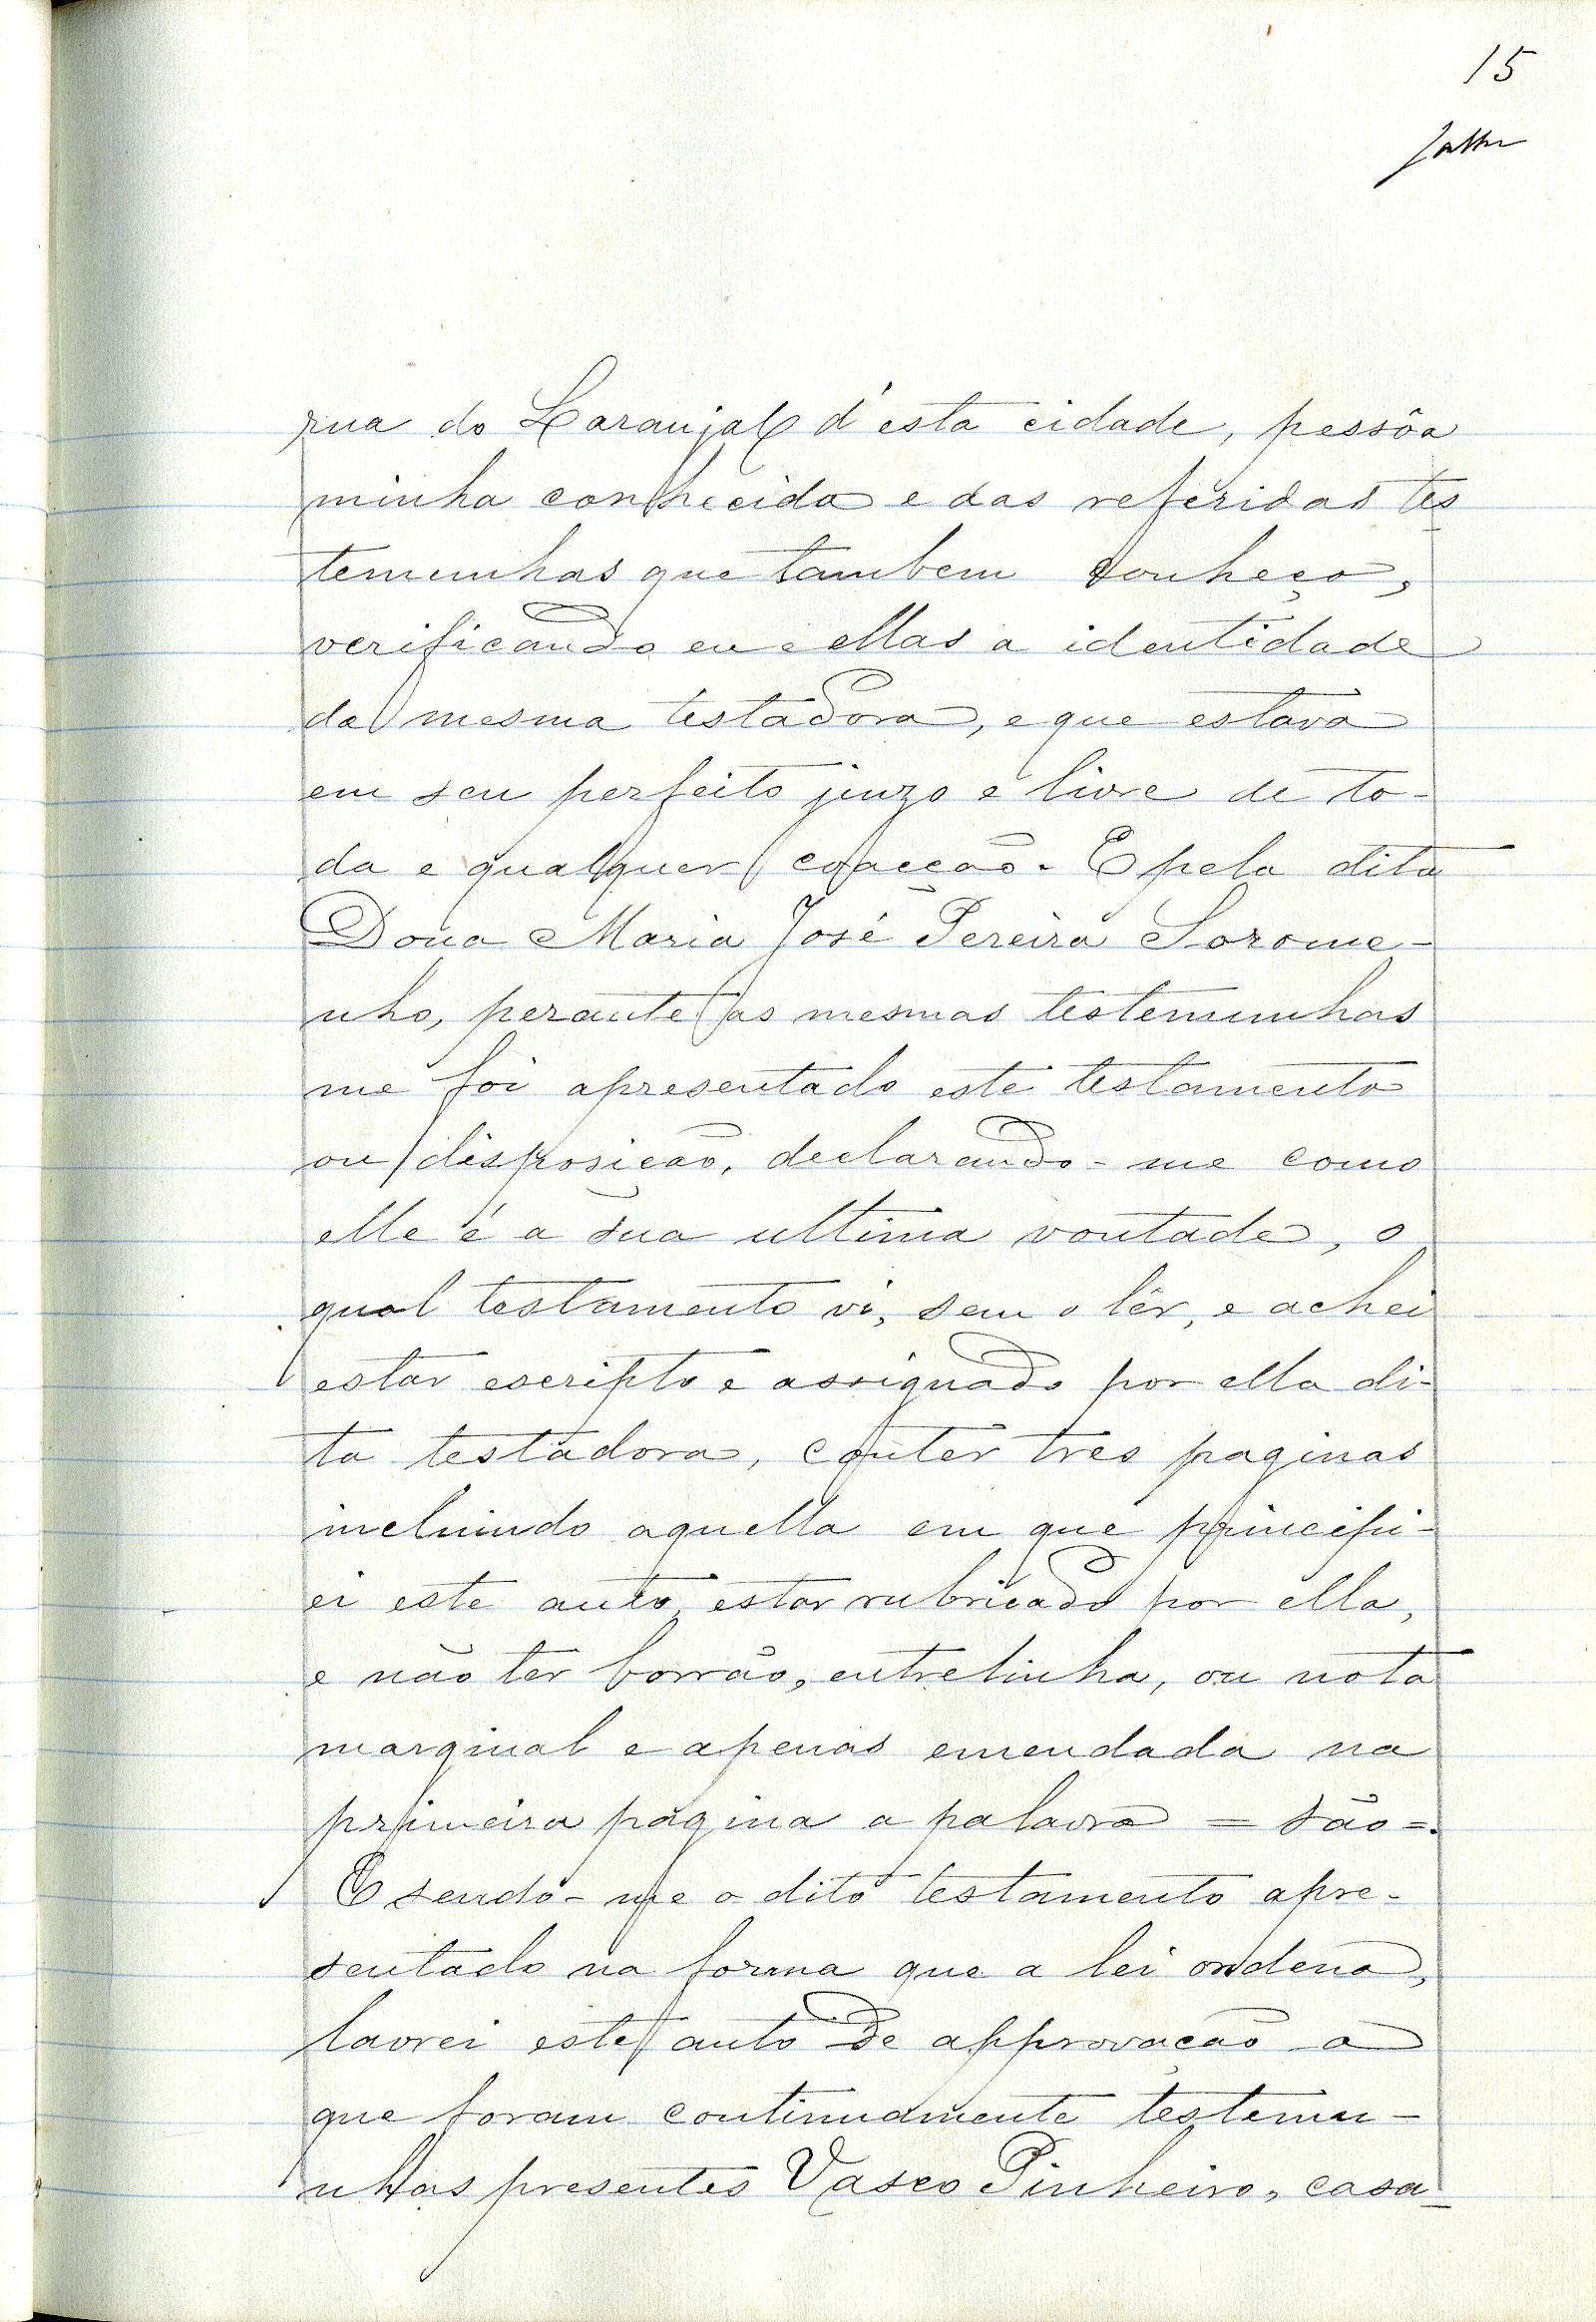 15
rua do Laranjal d'esta cidade, pessôa
minha conhecida e das referidas tes
temunhas que tambem conheço,
verificando eu e ellas a identidade
da mesma testadora, e que estava
em seu perfeito juizo e livre de to-
da e qualquer coacção. E pela dita
Dona Maria José Pereira Sorome-
nho, perante as mesmas testemunhas
me foi apresentado este testamento
ou disposição, declarando-me como
elle é a sua ultima vontade, o
qual testamento vi, sem o lêr, e achei
estar escripto e assignado por ella di-
ta testadora, conter tres paginas
incluindo aquella em que principi-
ei este auto, estar rubricado por ella,
e não ter borrão, entrelinha, ou nota
marginal e apenas emendada na
primeira pagina a palavra = são =.
E sendo-me o dito testamento apre-
sentado na forma que a lei ordena,
lavrei este auto de approvação a
que foram continuamente testemu-
nhas presentes Vasco Pinheiro, casa-